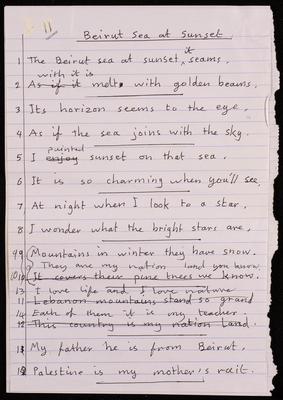 11
Beirut Sea at Sunset
1 The Beirut sea at sunset, it seams,
with it is
2 As if it melt with golden beams,
3 Its horizon seems to the eye,
4 As if the sea joins with the sky.
painted
5 I enjoy sunset on that sea,
6 It is so charming when you'll see,
7 At night when I look to a star,
8 I wonder what the bright stars are,
9 Mountains in winter they have snow.
They are my nation land you know,
10 It covers their pine trees we know.
13 I love life and I love nature
11 Lebanon mountains stand so grand
14 Each of them it is my teacher,
12 This country is my nation land.
My father he is from Beirut,
Palestine is my mother's roit.